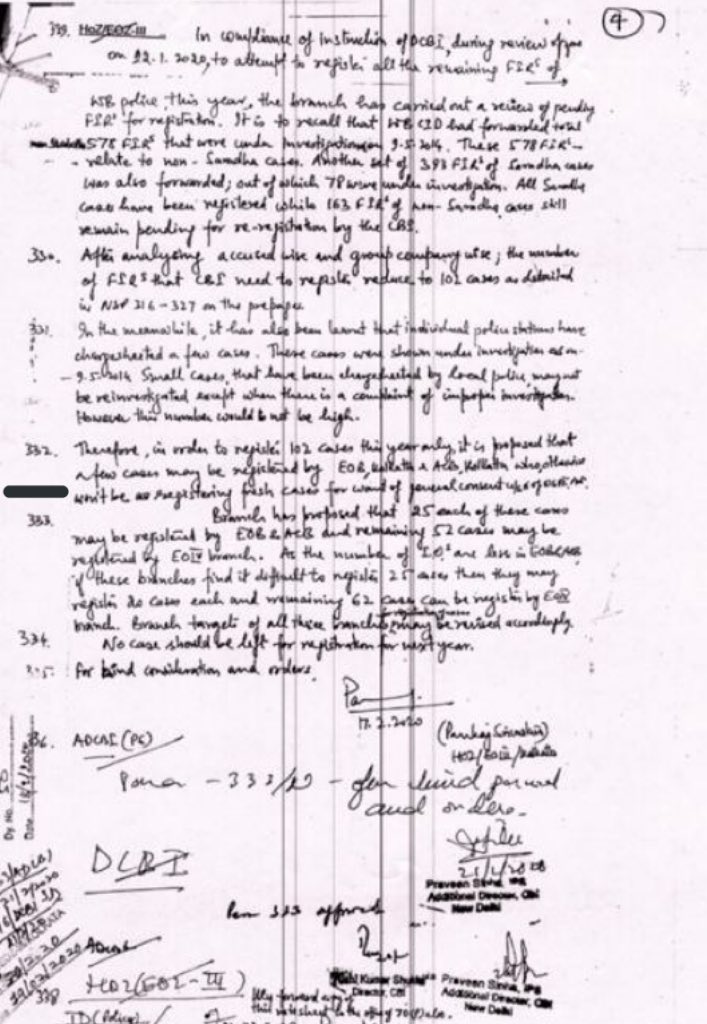 4
HoZ/EOZ-III
In compliance of Instruction of DCBI, during review of
on 22.1.2020, to attempt to register all the remaining FIRs of
WB police, this year, the branch has carried out a review of pending
FIRs for registration. It is to recall that WB CID had forwarded total
578 FIRs that were under investigation on 9.5.2014. These 578 FIRs
relate to non-Saradha cases. Another set of 393 FIRs of Saradha cases
was also forwarded; out of which 78 were under investigation. All Saradha
cases have been registered while 163 FIRs of non-Saradha cases still
remain pending for re-registration by the CBI.
330. After analysing accused wise and group company wise; the number
of FIRs that CBI need to register reduce to 102 cases as detailed
in NSP 216-327 on the prepage
331. In the meanwhile, it has also been learnt that individual police stations have
chargesheeted a few cases. These cases were shown under investigation as on
9.5.2014. Small cases, that have been chargesheeted by local police, may not
be reinvestigated except when there is a complaint of improper investigation.
However this number would not be high.
332. Therefore, in order to register 102 cases this year only, it is proposed that
a few cases may be registered by EOB, Kolkata & ACB, Kolkata who otherwise
won't be registering fresh cases for want of general consent
333. Branch has proposed that 25 each of these cases
may be registered by EOB & ACB and remaining 52 cases may be
registered by EOIV branch. As the number of IOs are less in EOB/ACB
if these branches find it difficult to register 25 cases then they may
register 20 cases each and remaining 62 cases can be register by
branch. Branch targets of all these branches may be revised accordingly
334. No case should be left for registration for next year.
335. For kind consideration and orders.
17.2.2020
(Pankaj Srivastava)
336. ADCBI (PS)
Para - 333/N - for kind perusal
and orders.
21/2/2020
Praveen Sinha, IPS
Additional Director, CBI
New Delhi
DCBI
Para 333 approved
Rishi Kumar Shukla
Director, CBI
Praveen Sinha, IPS
Additional Director, CBI
New Delhi
HOZ (EOZ-III)
338
JD (Policy)
Dy No.
Date